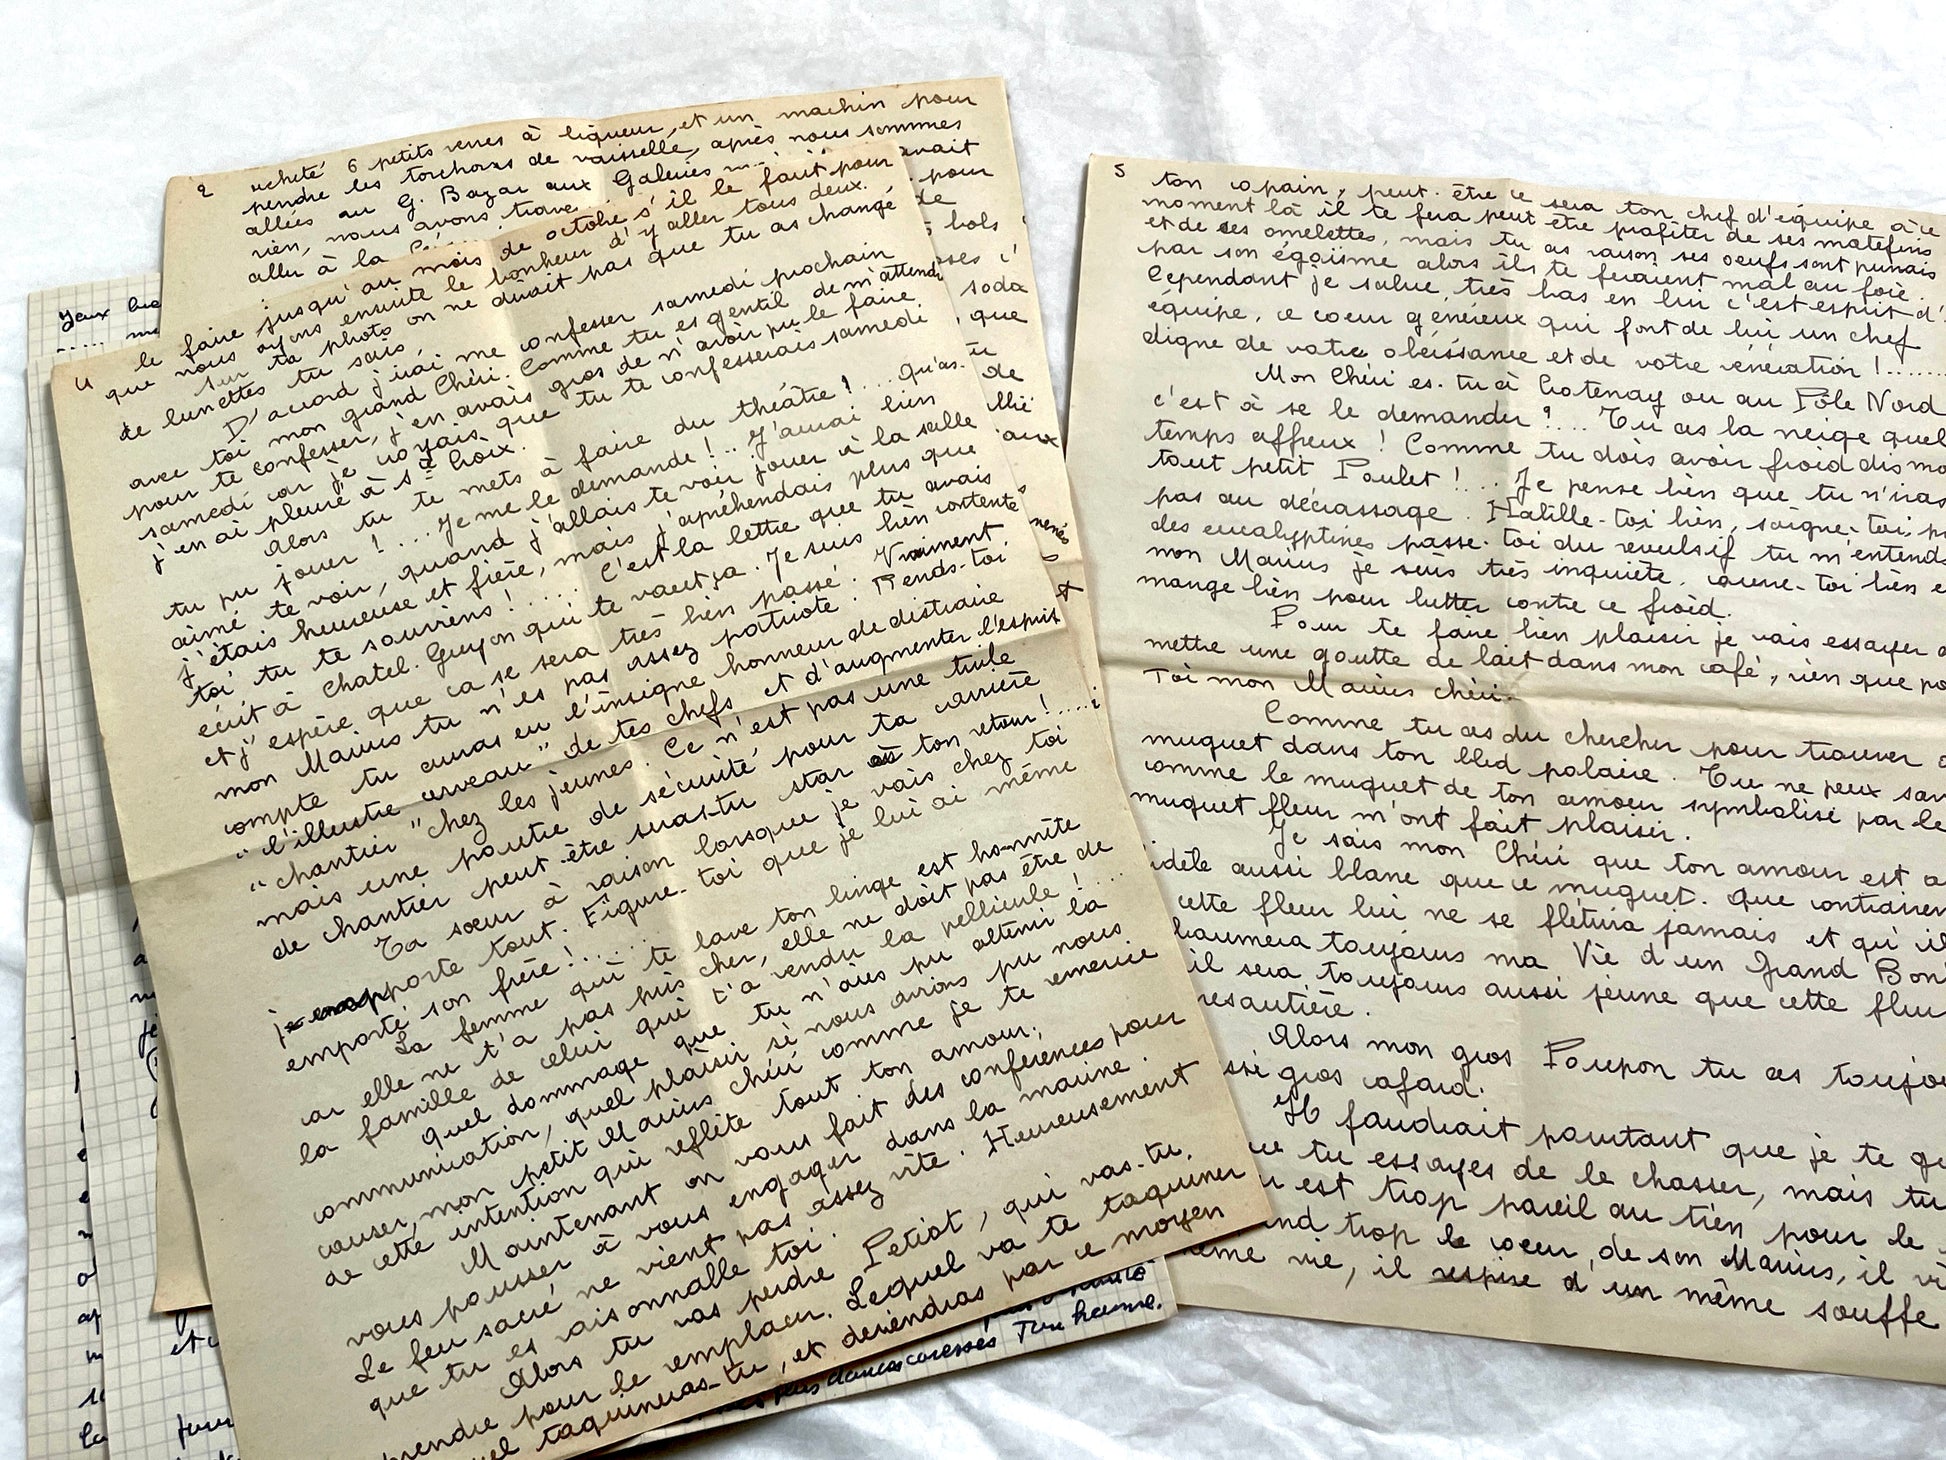 2
acheté 6 petits verres à liqueur, et un machin pour
pendre les torchons de vaisselle, après nous sommes
allées au G. Bazar aux Galeries
rien, nous avons
aller à la
avait
pour
de
bols
soda
que
de
aux
4
le faire jusqu'au mois de octobre s'il le faut pour
que nous ayons ensuite le bonheur d'y aller tous deux.
Sur ta photo on ne dirait pas que tu as changé
de lunettes tu sais,
D'accord j'irai me confesser samedi prochain
avec toi mon grand Chéri. Comme tu es gentil de m'attendre
pour te confesser, j'en avais gros de n'avoir pu le faire
samedi car je croyais que tu te confesserais samedi
j'en ai pleuré à Ste Croix.
Alors tu te mets à faire du théâtre !... Qu'as-tu
tu pu jouer !... Je me le demande !.. J'aurai bien
aimé te voir, quand j'allais te voir jouer à la salle
j'étais heureuse et fière, mais j'apréhendais plus que
toi tu te souviens !..... C'est la lettre que tu avais
écrit à Chatel. Guyon qui te vaut ça. Je suis bien contente
et j'espère que ca se sera très bien passé. Vraiment
mon Marius tu n'es pas assez patriote. Rends-toi
compte tu auras eu l'insigne honneur de distraire
"l'illustre cerveau" de tes chefs et d'augmenter l'esprit
"chantier" chez les jeunes. Ce n'est pas une tuile
mais une poutre de sécurité pour ta carrière
de chantier peut-être seras-tu star à ton retour !....
Ta sœur à raison lorsque je vais chez toi
j'emporte tout. Figure-toi que je lui ai même
emporté son frère !.....
La femme qui te lave ton linge est honnête
car elle ne t'a pas pris cher, elle ne doit pas être de
la famille de celui qui t'a vendu la pellicule !....
Quel dommage que tu n'aies pu obtenir la
communication, quel plaisir si nous avions pu nous
causer, mon petit Marius chéri comme je te remercie
de cette intention qui reflète tout ton amour.
Maintenant on vous fait des conférences pour
vous pousser à vous engager dans la marine.
Le feu sacré ne vient pas assez vite. Heureusement
que tu es raisonnable toi.
Alors tu vas perdre Petiot, qui vas-tu
prendre pour le remplacer. Lequel va te taquiner
taquineras-tu, et deviendras par ce moyen
5
ton copain, peut-être ce sera ton chef d'équipe à ce
moment là il te fera peut être profiter de ses matefins
et de ses omelettes, mais tu as raison ses oeufs sont punais
par son égoïsme alors ils te feraient mal au foie.
Cependant je salue très bas en lui c'est esprit d'
équipe, ce coeur généreux qui font de lui un chef
digne de votre obéissance et de votre vénération !.......
Mon Chéri es-tu à Crotenay ou au Pôle Nord
c'est à se le demander ?... Tu as la neige quel
temps affreux ! Comme tu dois avoir froid dis mon
tout petit Poulet !... Je pense bien que tu n'iras
pas au décrassage. Habille-toi bien, soigne-toi,
des eucalyptines passe-toi du revulsif tu m'entends
mon Marius je suis très inquiète.
mange bien pour lutter contre ce froid.
Pour te faire bien plaisir je vais essayer
mettre une goutte de lait dans mon café, rien que
Toi mon Marius chéri.
Comme tu as du chercher pour trouver
muguet dans ton bled polaire. Tu ne peux
comme le muguet de ton amour symbolisé par le
muguet fleur m'ont fait plaisir.
Je sais mon Chéri que ton amour est
fidèle aussi blanc que ce muguet. Que
cette fleur lui ne se flétrira jamais et qu'il
baumera toujours ma Vie d'un Grand
il sera toujours aussi jeune que cette fleur
Alors mon gros Poupon tu as
gros cafard.
Il faudrait pourtant que je te
tu essayes de le chasser, mais tu
est trop pareil au tien pour le
trop le coeur de son Marius, il
même vie, il respire d'un même souffle